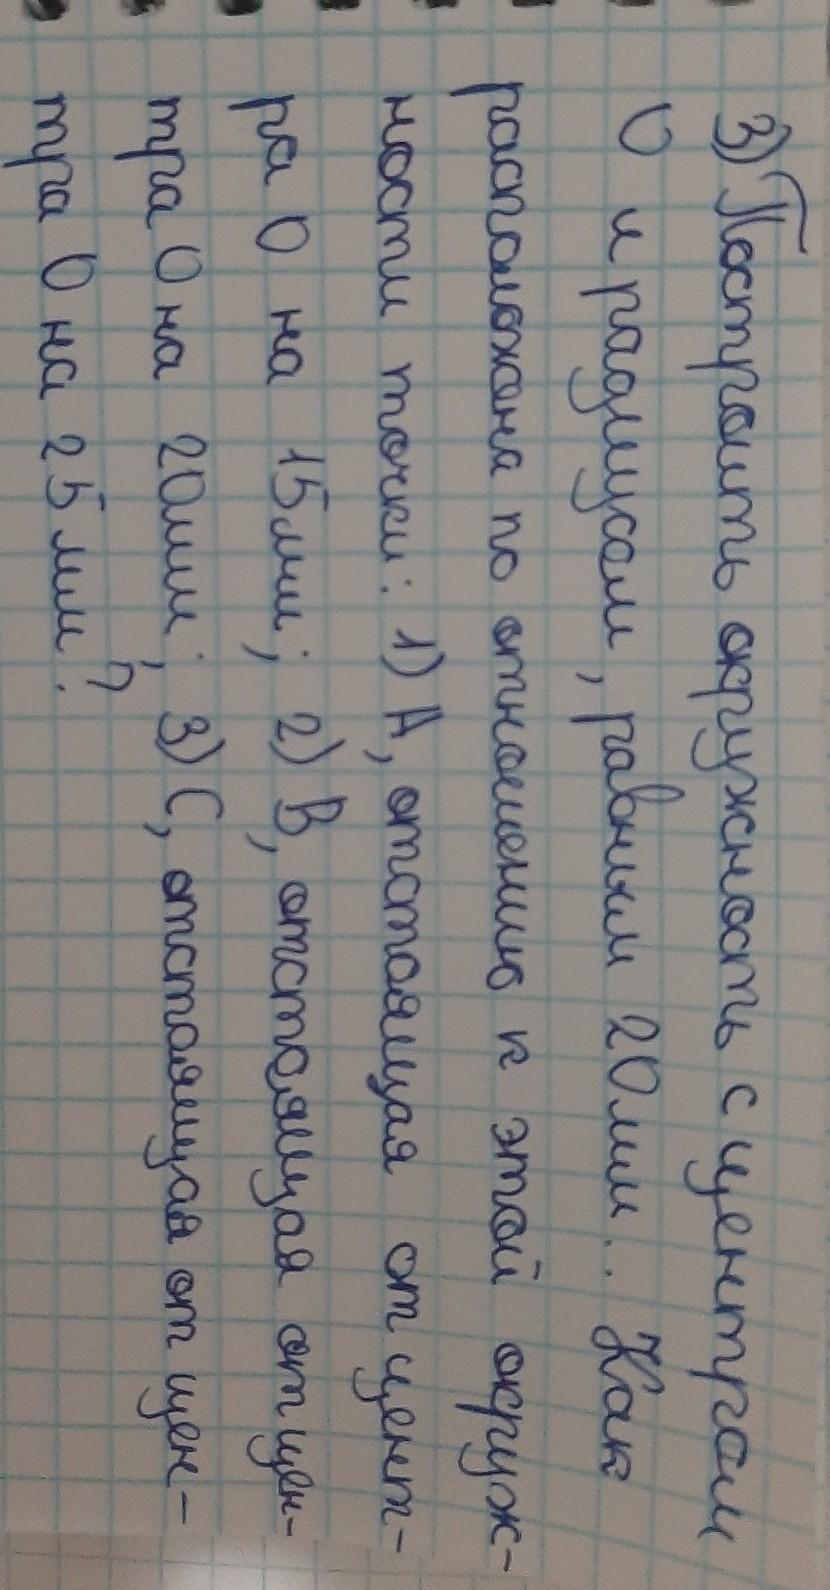 3) Построить окружность с центром
О и радиусом, равным 20мм.. Как
расположена по отношению к этой окруж-
ности точки: 1) А, отстоящая от цент-
ра О на 15мм; 2) В, отстоящая от цен-
тра О на 20мм; 3) С, отстоящая от цен-
тра О на 25мм?